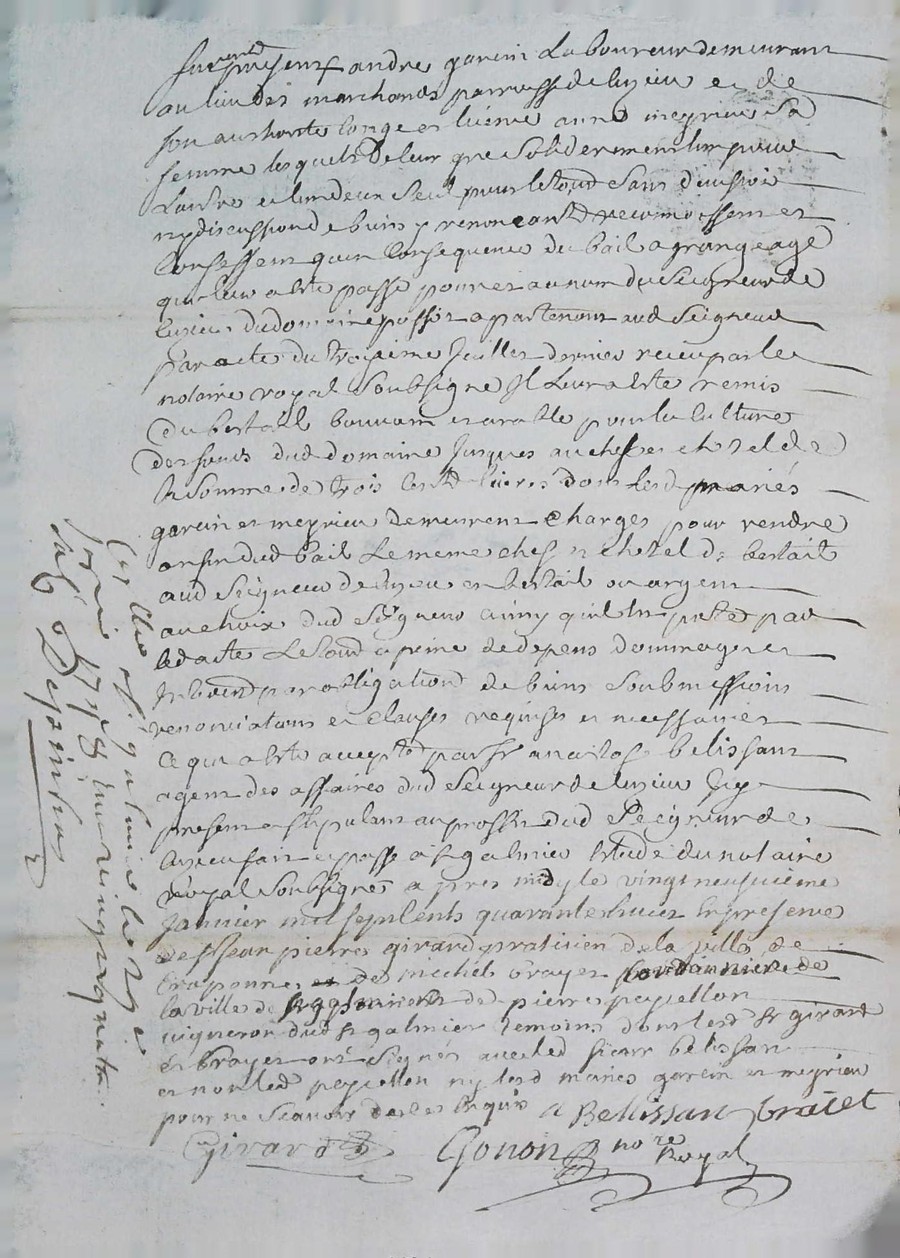 furent presents andre garein Laboureur demeurant
au lieu des marchands parroisse de luzieu et de
son authorite conge et licence anne meyrieu Sa
femme lesquels de leur gre Solidairement lun pour
Lautre et lun deux Seul pour le toud Sans division
ny discussiond de biens y renonceantz reconnoissent et
Confessent quen Consequence du bail a grangeage
qui leur a este passe pour et au nom du Seigneur de
Luzieu du domaine apartenant aud Seigneur
Par acte du troizieme Juillet dernier receu par le
notaire royal Soubsigne Jl Leur a este remis
du bestail bouvain et aratte pour la Culture
des fonds dud domaine Jusques au chef et chetel de
la Somme de trois Cents livres dont lesd mariés
garein et meyrieu demeurent Charges pour rendre
a la fin dud bail Le meme chef et chetel de bestail
aud Seigneur de luzieu en bestail ou argent
au choix dud Seigneur ainsy quil est porte par
led acte Le toud a peine de depens dommages et
Jnterest par obligationd de biens Soubmissions
renonciations et Clauses requises et necessaires
Ce qui a este accepte par Sr belissant
agent des affaires dud Seigneur de luzieu Jcy
present et stipulant au proffit dud Seigneur de
Luzieu fait et passe a st galmier Estude du notaire
Royal Soubsigné apres midy le vingt neufvieme
Janvier mil sept Cents quarante huict En presence
de sieur pierre girard praticien de la ville de
Craponne et de michel brayet Cordonnier de
la ville de st galmier et de pierre peyrellon
vigneron dud st galmier temoins dont led sr girard
et brayet ont Signés avec led sieur belissan
et non led peyrellon ny lesd mariés garein et meyrieu
pour ne Scavoir de ce Enquis a Belissan braiet
Girard Gonon nore Royal
Controllé a st galmier le
janvier 1748
Desminher